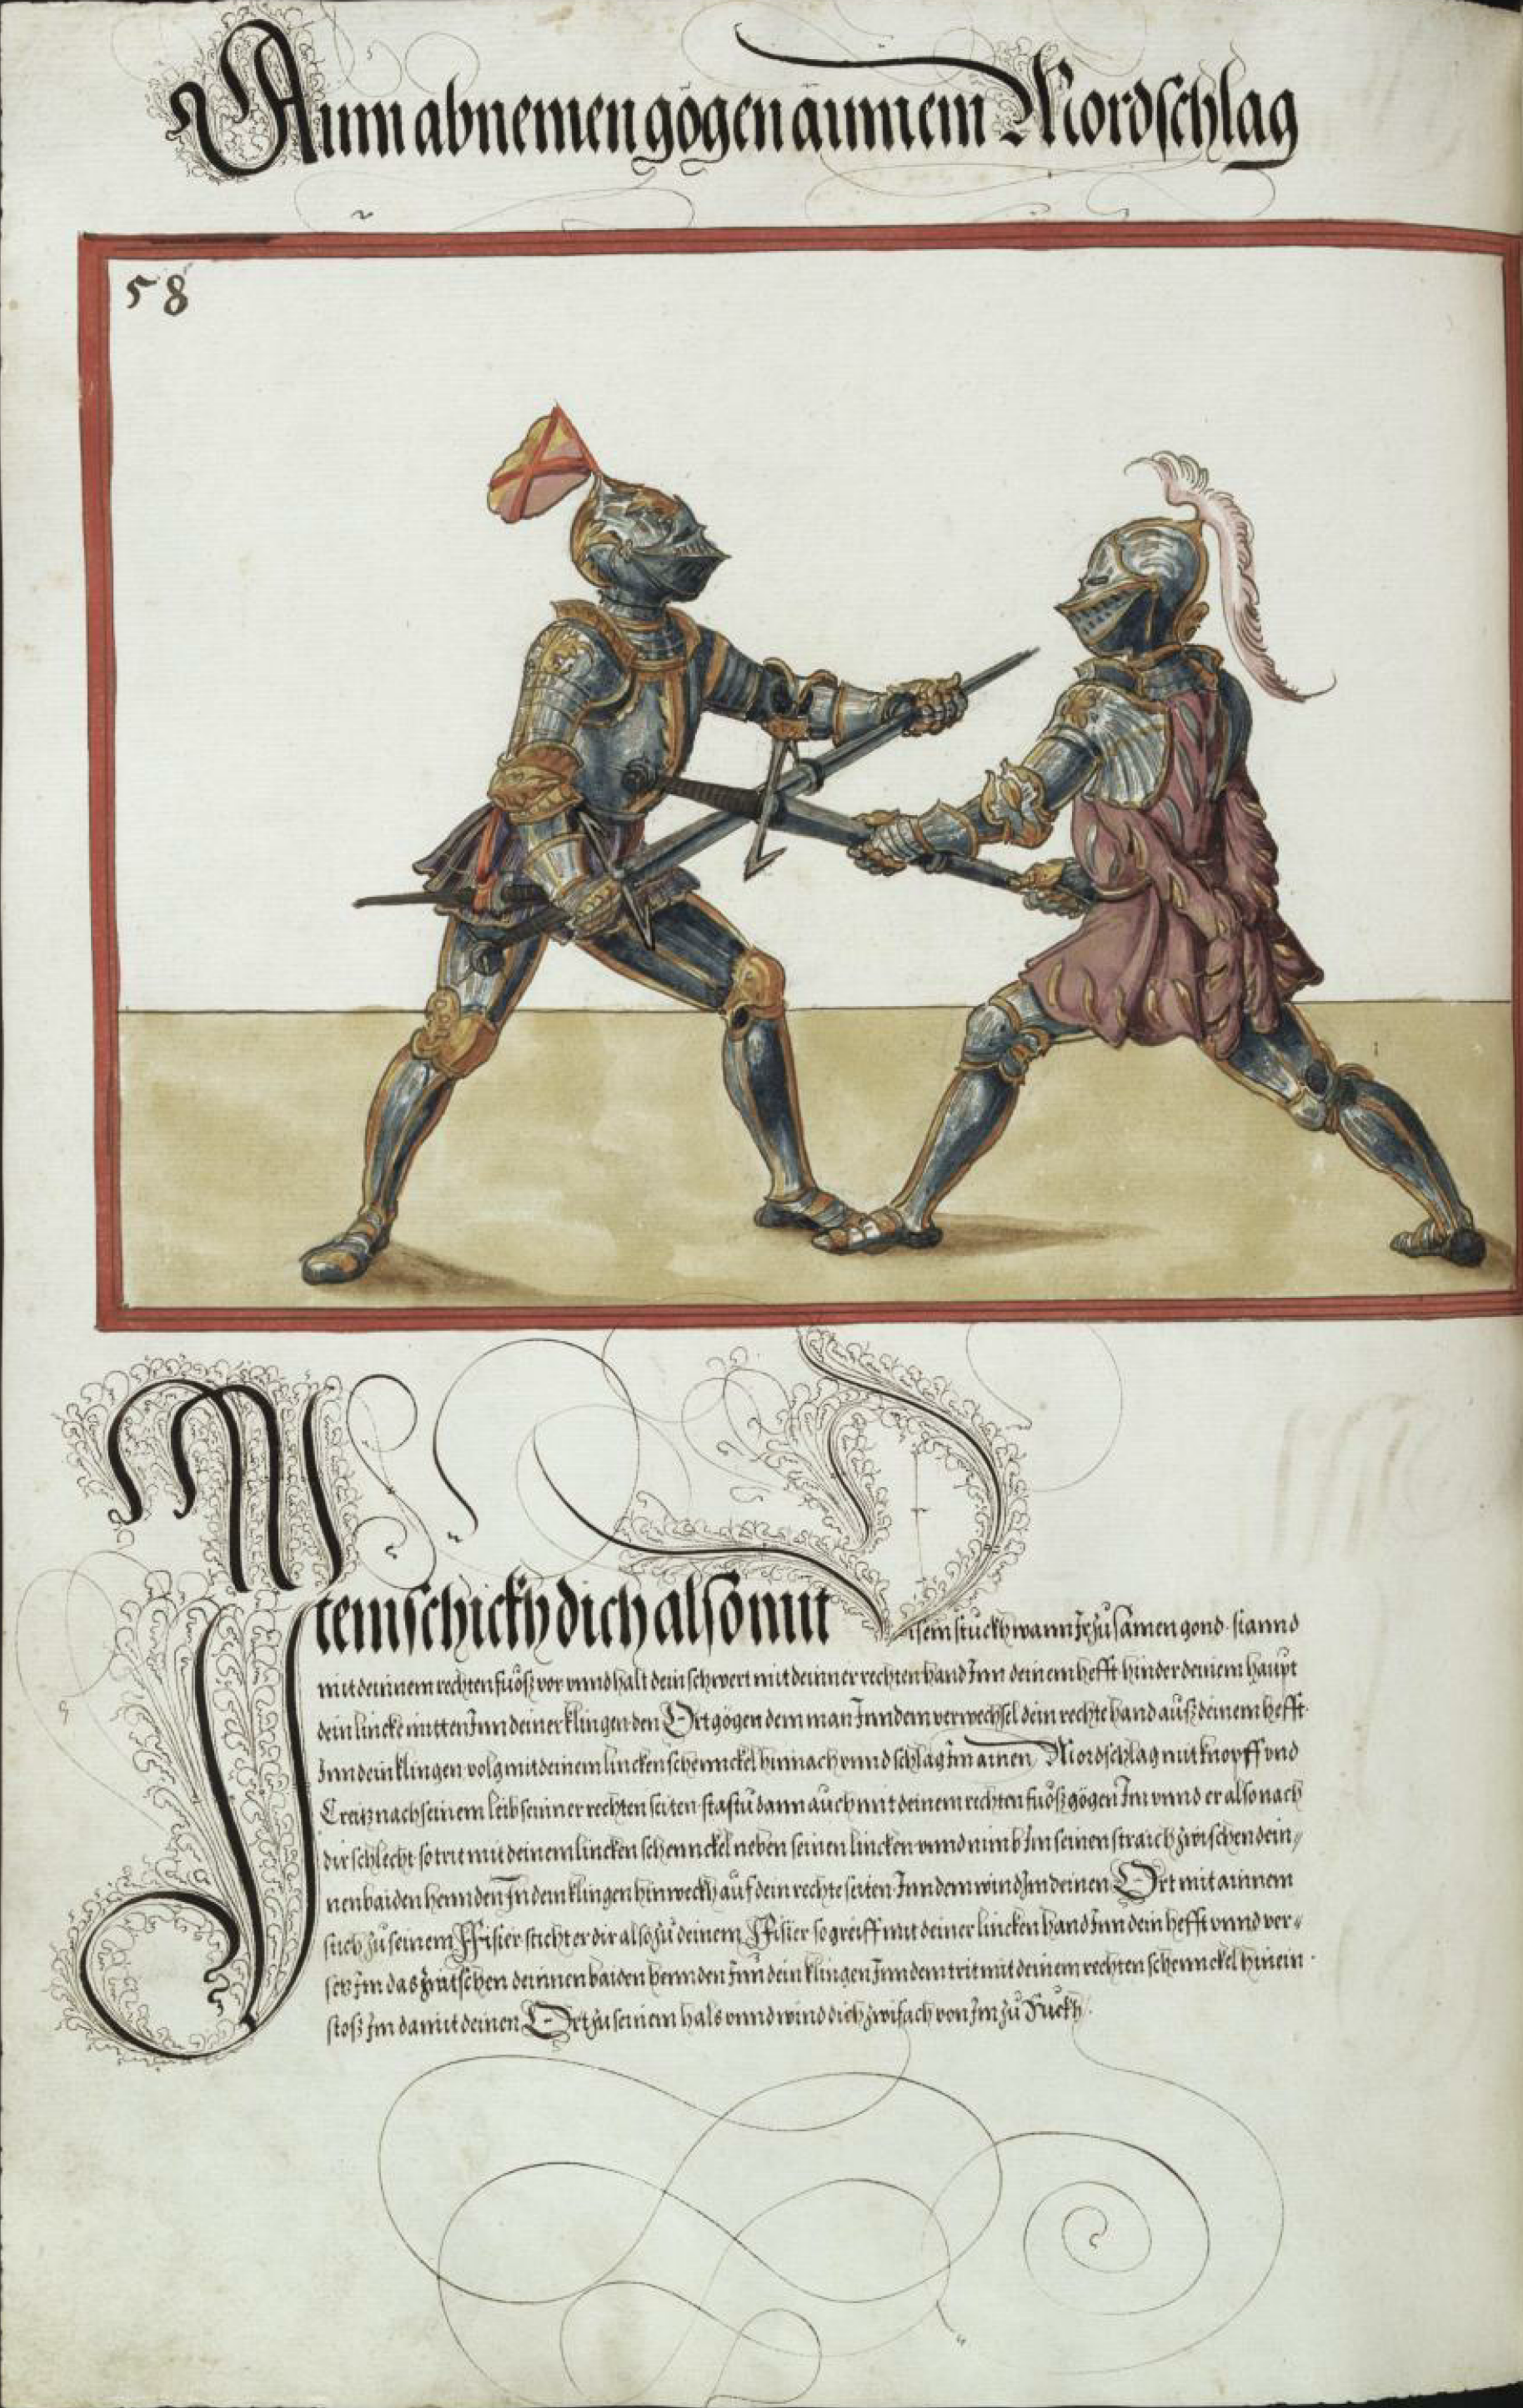 Ainn abnemen gögen ainnem Mordschlag
58
Item schickh dich also mit Disem stuckh wann Ir zusamen gond. stannd
mit deinnem rechten fuosz vor unnd halt dein schwert mit deinner rechten hand Inn deinem hefft hinder deinem haupt
dein lincke mitten Inn deiner klingen den Ort gögen dem man Inn dem verwechsel dein rechte hand ausz deinem hefft
Inn dein klingen volg mit deinem lincken schennckel hinnach unnd schlag Im ainen Mordschlag mit knopff und
Creitz nach seinem leib seinner rechten seiten stastu dann auch mit deinem rechten fuosz gögen Im unnd er also nach
dir schlecht so trit mit deinem lincken schennckel neben seinen lincken unnd nimb Im seinen straich zwischen dein„
nen baiden hennden In dein klingen hinweckh auf dein rechte seiten Inn dem wind Im deinen Ort mit ainnem
stich zu seinem Fisier sticht er dir also zu deinem Fisier so greiff mit deiner lincken hand Inn dein hefft unnd ver„
setz Im das zwischen deinnen baiden hennden Inn dein klingen Inn dem trit mit deinem rechten schennckel hinein
stosz Im damit deinen Ort zu seinem hals unnd wind dich zwifach von Im zu Ruckh.